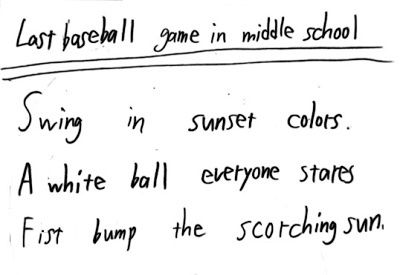 Last baseball game in middle school
Swing in sunset colors.
A white ball everyone stares
Fist bump the scorching sun.